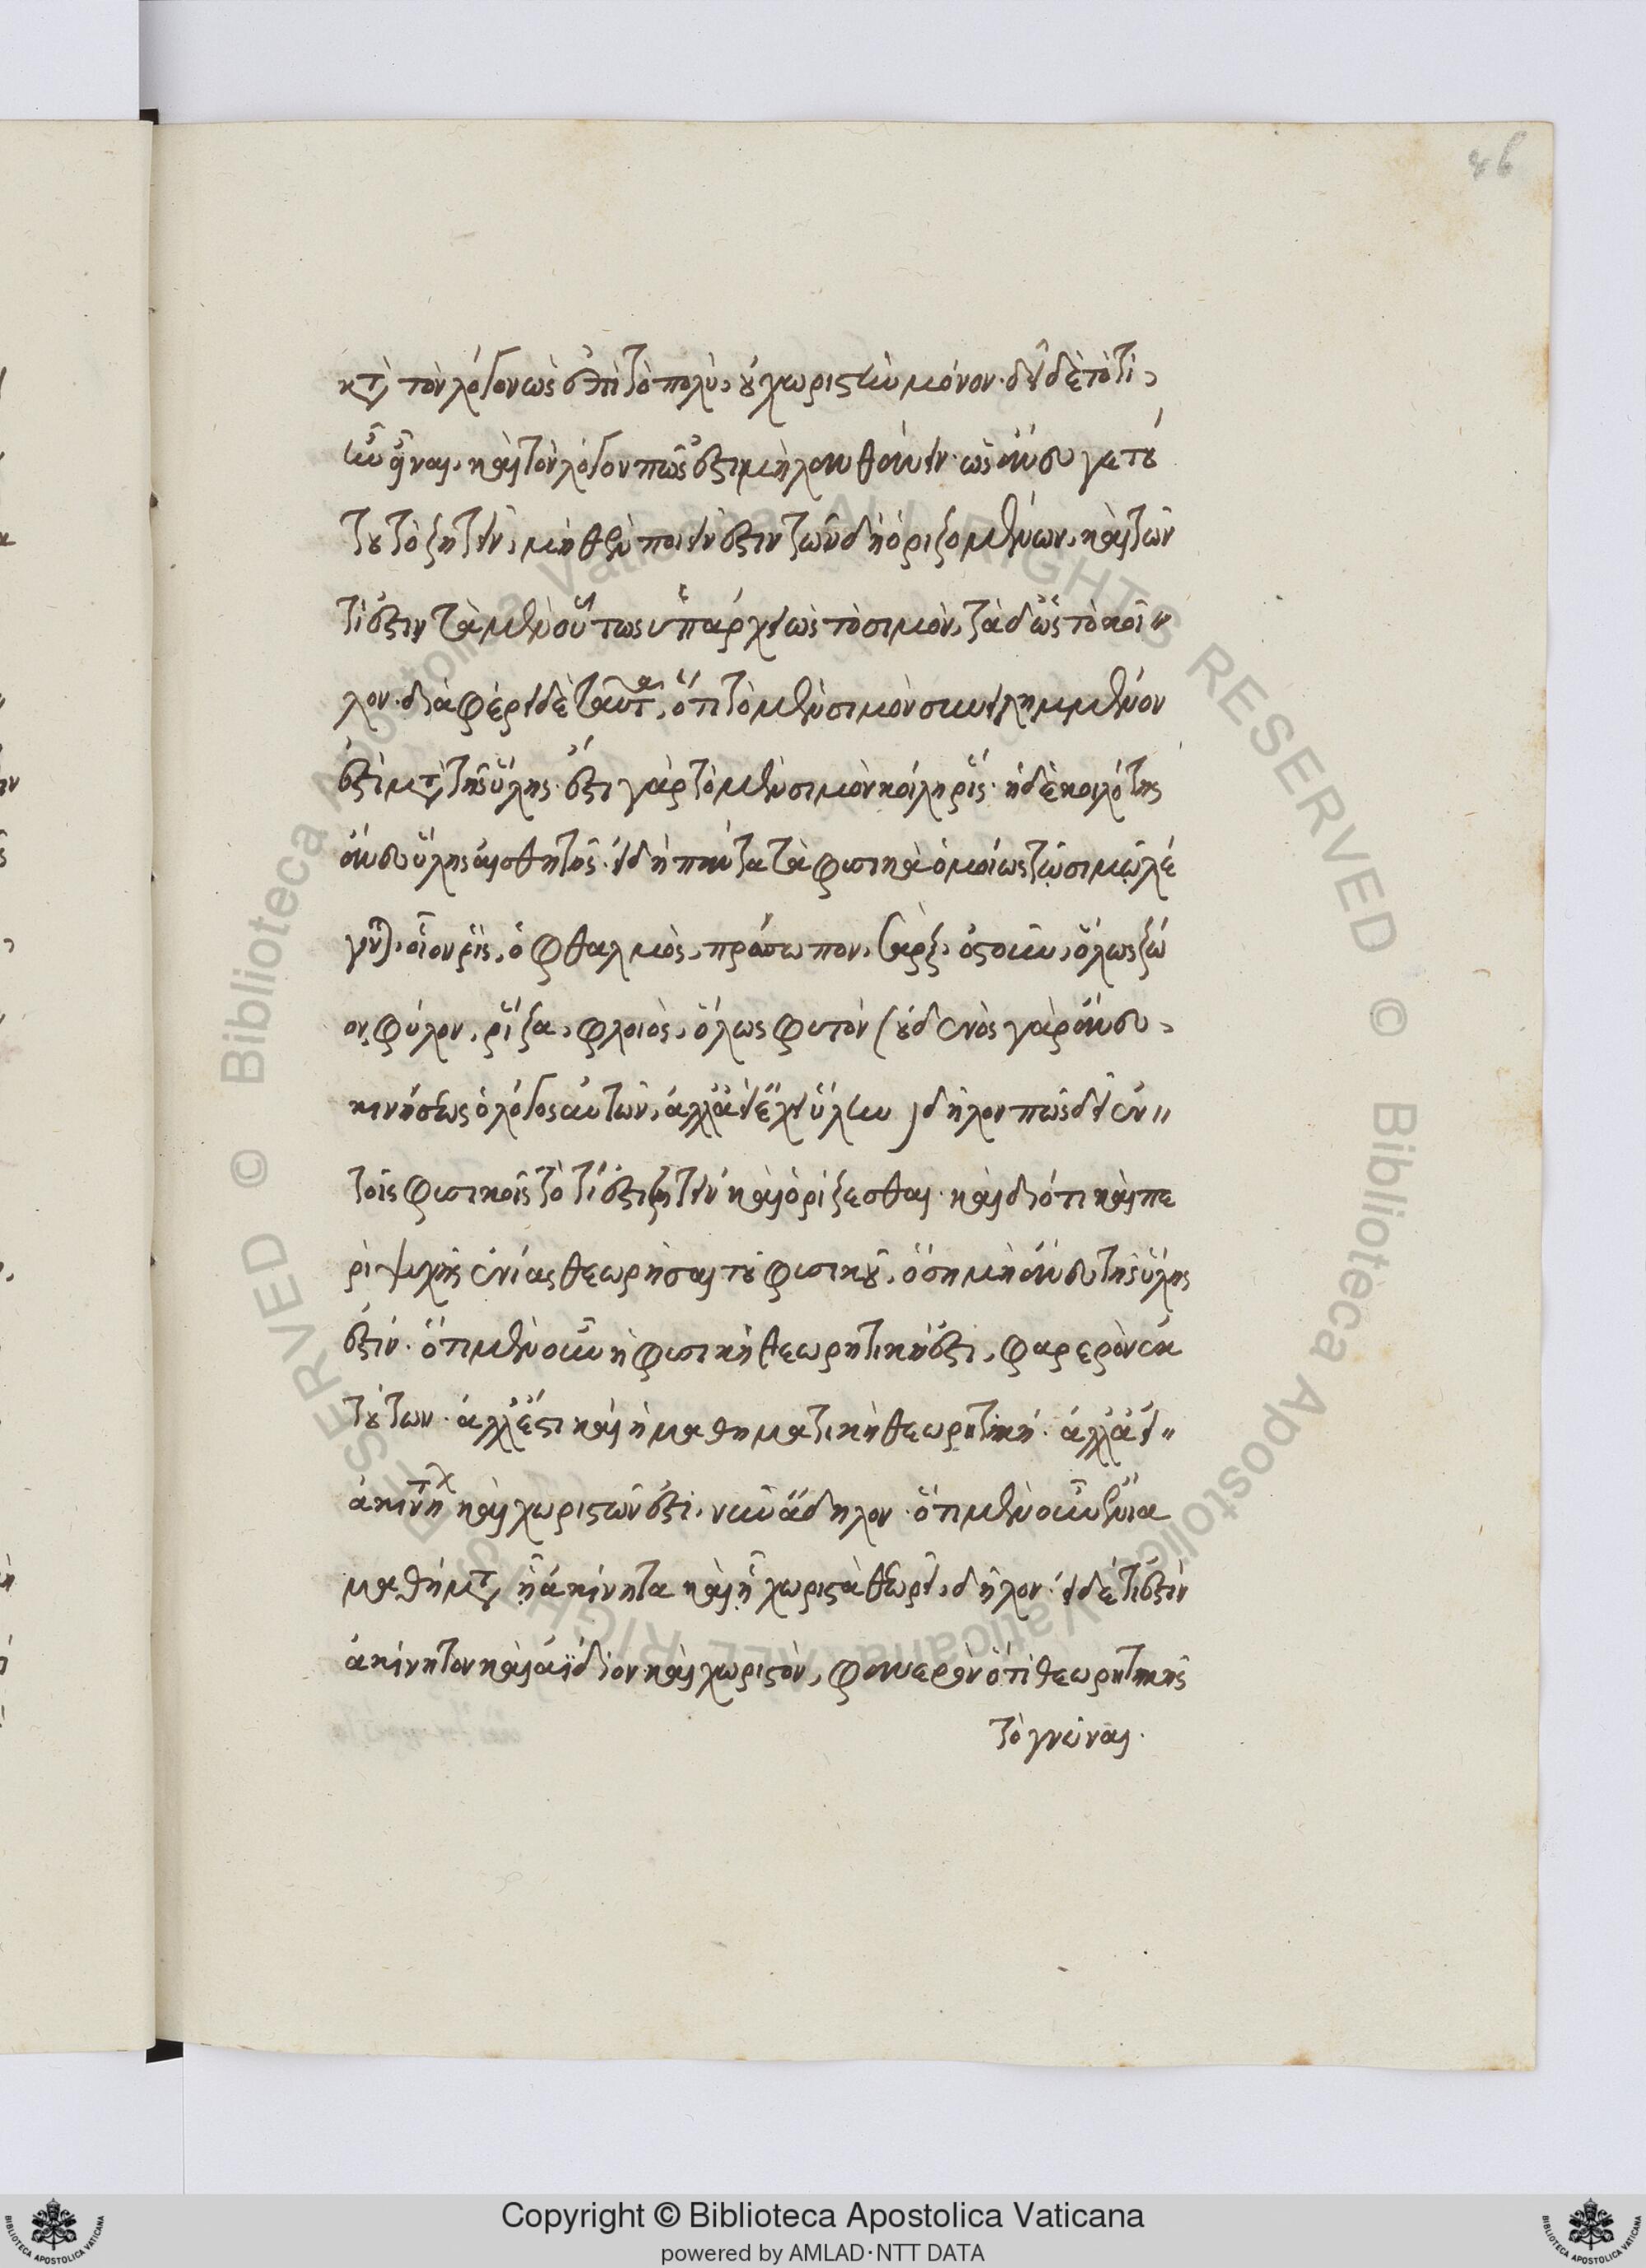 46
κατὰ τὸν λόγον ὡς ἐπὶ τὸ πολὺ, οὐ χωριστὴν μόνον. δεῖ δὲ τὸ τί
ἦν εἶναι, καὶ τὸν λόγον πῶς ἐστι μὴ λανθάνειν. ὡς ἄνευ γε τού
του τὸ ζητεῖν, μηθέν ποιεῖν ἐστιν τῶν δὴ ὁριζομένων, καὶ τῶν
τί ἐστιν τὰ μὲν οὕτως ὑπάρχει ὡς τὸ σιμὸν, τὰ δ' ὡς τὸ κοῖ
λον. διαφέρει δὲ ταῦτα, ὅτι τὸ μὲν σιμὸν συνειλημμένον
ἐστὶ μετὰ τῆς ὕλης. ἔστι γὰρ τὸ μὲν σιμὸν κοίλη ρίς. ἡ δὲ κοιλότης
ἄνευ ὕλης αἰσθητῆς. εἰ δὴ πάντα τὰ φυσικὰ ὁμοίως τῷ σιμῷ λέ
γεται. οἷον ρίς, ὀφθαλμὸς, πρόσωπον, σὰρξ, ὀστοῦν, ὅλως ζῶ
ον, φύλον, ῥίζα, φλοιὸς, ὅλως φυτόν (οὐδενὸς γὰρ ἄνευ
κινήσεως ὁ λόγος αὐτῶν, ἀλλ' ἀεὶ ἔχει ὕλην) δῆλον πῶς δεῖ ἐν
τοῖς φυσικοῖς τὸ τί ἐστι ζητεῖν καὶ ὁρίζεσθαι. καὶ διότι καὶ πε
ρὶ ψυχῆς ἐνίας θεωρῆσαι τοῦ φυσικοῦ, ὅση μὴ ἄνευ τῆς ὕλης
ἐστίν. ὅτι μὲν οὖν ἡ φυσικὴ θεωρητική ἐστι, φανερὸν ἐκ
τούτων. ἀλλ' ἔστι καὶ ἡ μαθηματικὴ θεωρητική. ἀλλ' εἰ
ἀκινήτων καὶ χωριστῶν ἐστι, νῦν ἄδηλον. ὅτι μὲν οὖν ἔνια
μαθήματα ᾗ ἀκίνητα καὶ ᾗ χωριστὰ θεωρεῖ, δῆλον. εἰ δέ τί ἐστιν
ἀκίνητον καὶ ἀΐδιον καὶ χωριστὸν, φανερὸν ὅτι θεωρητικῆς
τὸ γνῶναι.
Copyright © Biblioteca Apostolica Vaticana
powered by AMLAD·NTT DATA